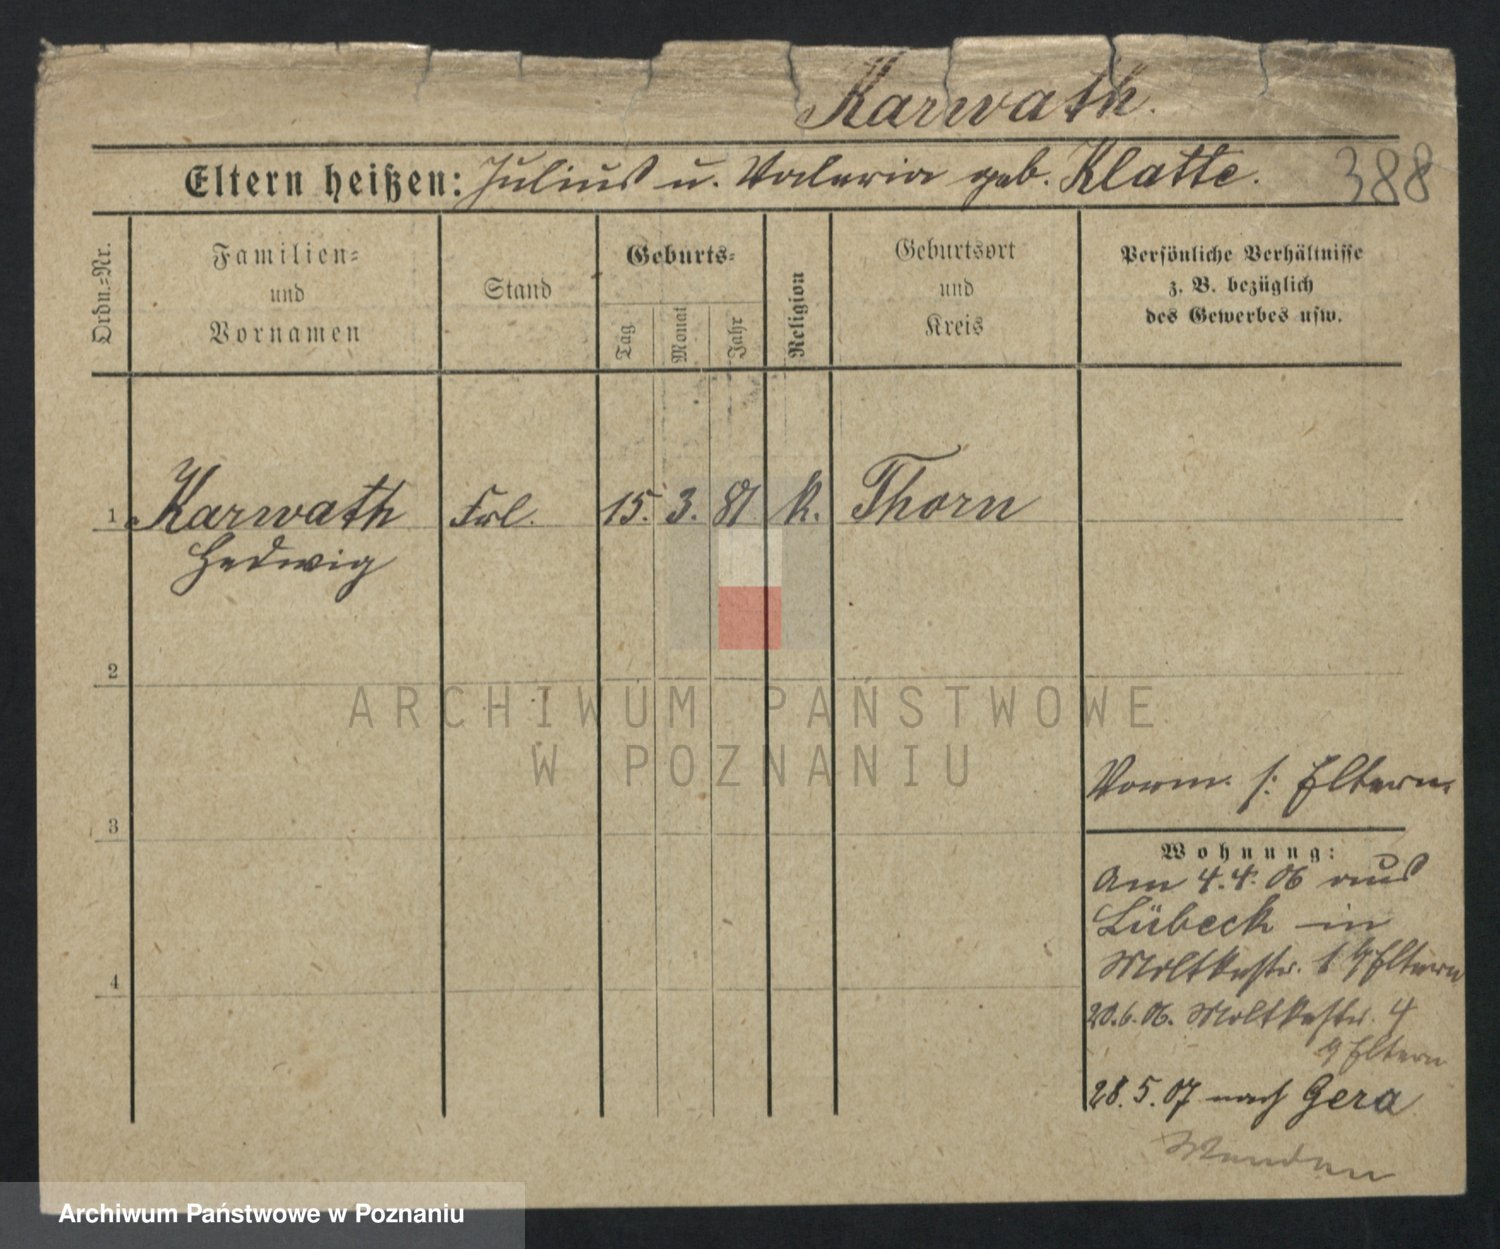 Karwath.
Eltern heißen: Julius u. Valeria geb. Klatte. 388
Ordn.=Nr.
Familien=
und
Vornamen
Stand
Geburts=
Tag
Monat
Jahr
Religion
Geburtsort
und
Kreis
Persönliche Verhältnisse
z. B. bezüglich
des Gewerbes usw.
1 Karwath Frl. 15. 3. 81 k. Thorn
Hedwig
2
ARCHIWUM PAŃSTWOWE
W POZNANIU
Vorm. s: Eltern.
3
Wohnung:
Am 4.4.06 aus
Lübeck in
Moltkestr. Eltern
4
20.6.06. Moltkestr. 4
Eltern
28.5.07 nach Gera
Wenden
Archiwum Państwowe w Poznaniu